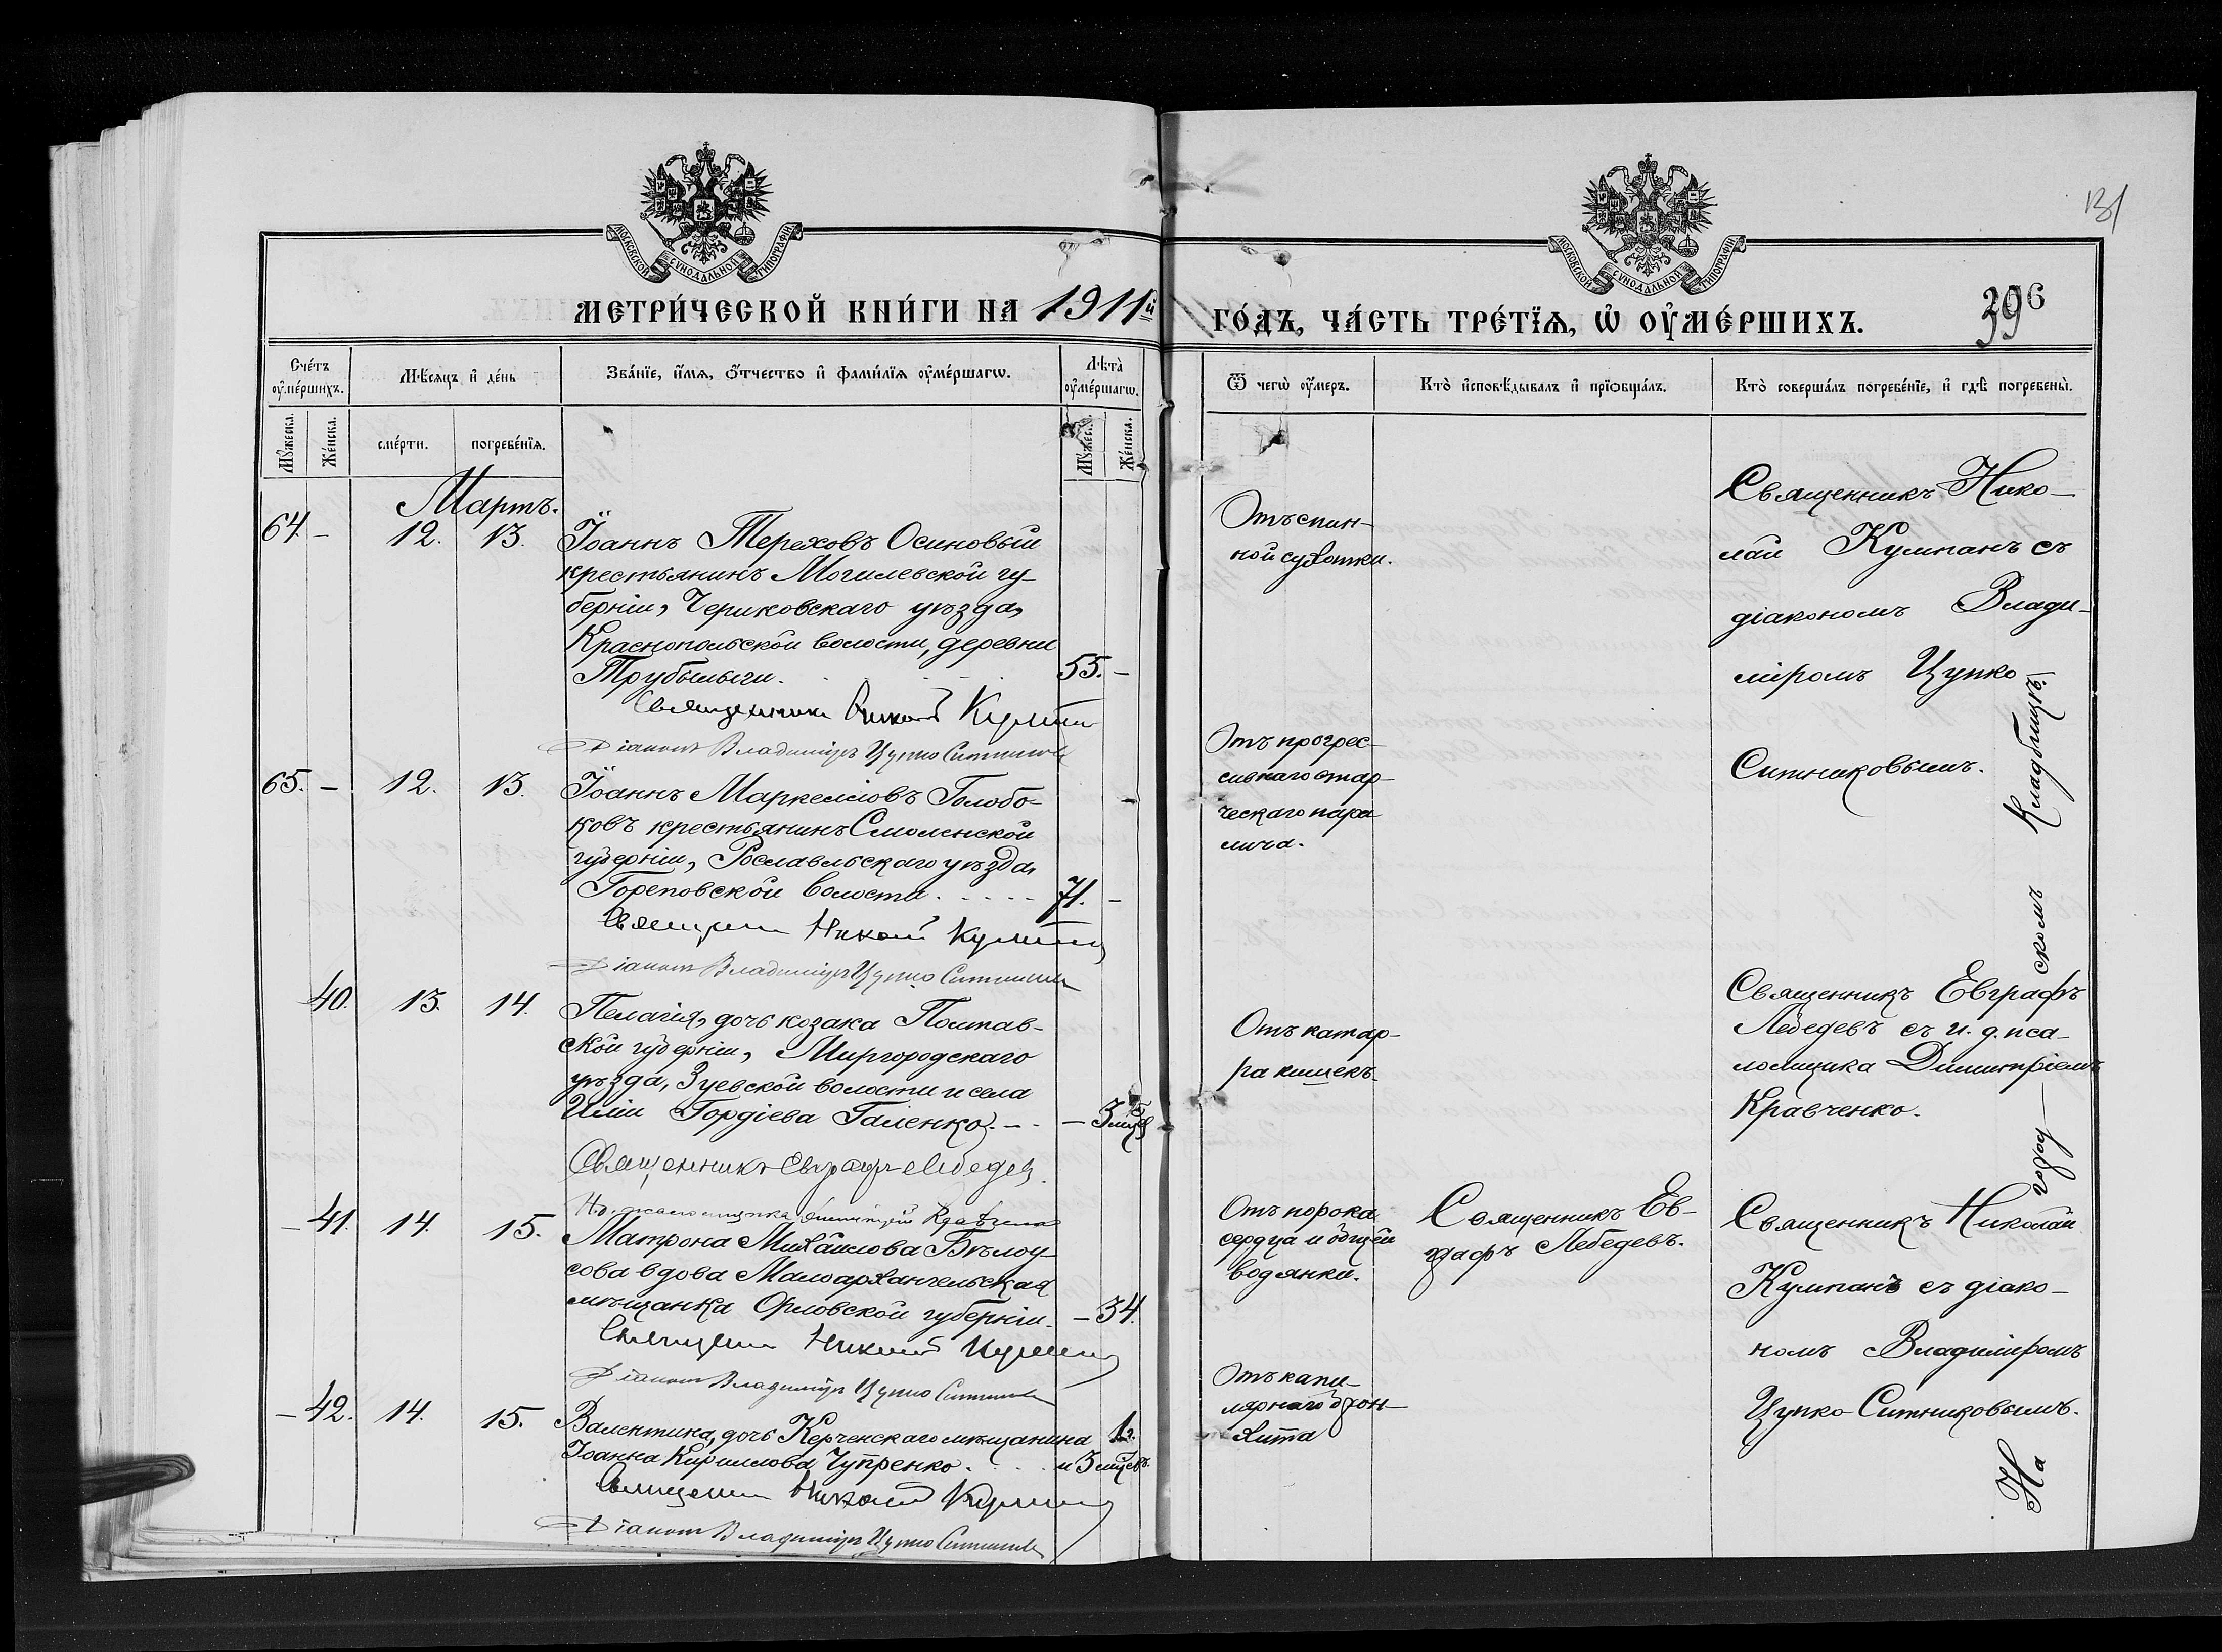 131
396
МОСКОВСКОЙ СѴНОДАЛЬНОЙ ТИПОГРАФІИ
МОСКОВСКОЙ СѴНОДАЛЬНОЙ ТИПОГРАФІИ
МЕТРИ́ЧЕСКОЙ КНИ́ГИ НА 1911й
ГО́ДЪ, ЧА́СТЬ ТРЕ́ТЇѦ, Ѡ ОУМЕ́РШИХЪ.
Сче́тъ оуме́ршихъ.
Мѣ́сяцъ и де́нь
Зва́нїе, и́мѧ, о́тчество и фами́лїѧ оуме́ршагѡ.
Лѣта̀ оуме́ршагѡ.
Ѿ чегѡ̀ оу́меръ.
Кто̀ исповѣ́дывалъ и прїѡбща́лъ.
Кто̀ соверша́лъ погребе́нїе, и гдѣ̀ погребены̀.
Му́жеска.
Же́нска.
сме́рти.
погребе́нїѧ.
Му́жеск.
Же́нска.
Мартъ.
64. – 12. 13.
Іоаннъ Тереховъ Осиновый
крестьянинъ Могилевской гу-
берніи, Чериковскаго уѣзда,
Краснопольской волости, деревни
Трубильни. 55. –
Священникъ Николай Кумпан
Діаконъ Владиміръ Цупко Ситников
Отъ спин-
ной сухотки.
Священникъ Нико-
лай Кумпанъ съ
діакономъ Влади-
міромъ Цупко-
Ситниковымъ.
65. – 12. 13.
Іоаннъ Маркелловъ Голобо-
ковъ крестьянинъ Смоленской
губерніи, Рославльскаго уѣзда,
Гореновской волости. 71. –
Священник Николай Кумпан
Діаконъ Владиміръ Цупко Ситников
Отъ прогрес-
сивнаго стар-
ческаго пара-
лича.
40. 13. 14.
Пелагія, дочь козака Полтав-
ской губерніи, Миргородскаго
уѣзда, Зуевской волости и села
Иліи Гордіева Галенко. – 3 мцв
Священникъ Евграфъ Лебедев.
И.д. псаломщика Димитрій Кравченко
Отъ катар-
ра кишекъ.
Священникъ Евграфъ
Лебедевъ съ и. д. пса-
ломщика Димитріемъ
Кравченко.
– 41. 14. 15.
Матрона Михайлова Бѣлоу-
сова вдова Малоархангельская
мѣщанка Орловской губерніи. – 34.
Священник Николай Кумпан
Діаконъ Владиміръ Цупко Ситников
Отъ порока
сердца и общей
водянки.
Священникъ Ев-
графъ Лебедевъ.
Священникъ Николай
Кумпанъ съ діако-
номъ Владиміромъ
Цупко-Ситниковымъ.
– 42. 14. 15.
Валентина, дочь Керченскаго мѣщанина 1 г.
Іоанна Кириллова Чупренко. и 3 мцсв.
Священник Николай Кумпан
Діаконъ Владиміръ Цупко Ситников
Отъ капи-
лярнаго брон-
хита
На город-
скомъ
Кладбищѣ.